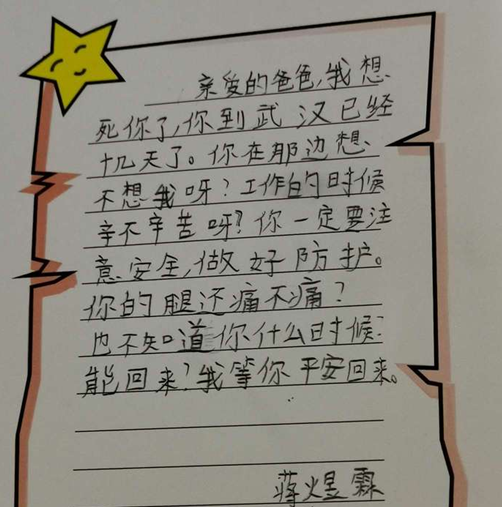 亲爱的爸爸,我想
死你了,你到武汉已经
十几天了。你在那边想
不想我呀?工作的时候
辛不辛苦呀?你一定要注
意安全,做好防护。
你的腿还痛不痛?
也不知道你什么时候
能回来?我等你平安回来。
蒋煜霖